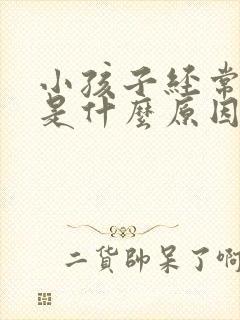 小孩子經常
是什麼原因
二貨帥呆了啊